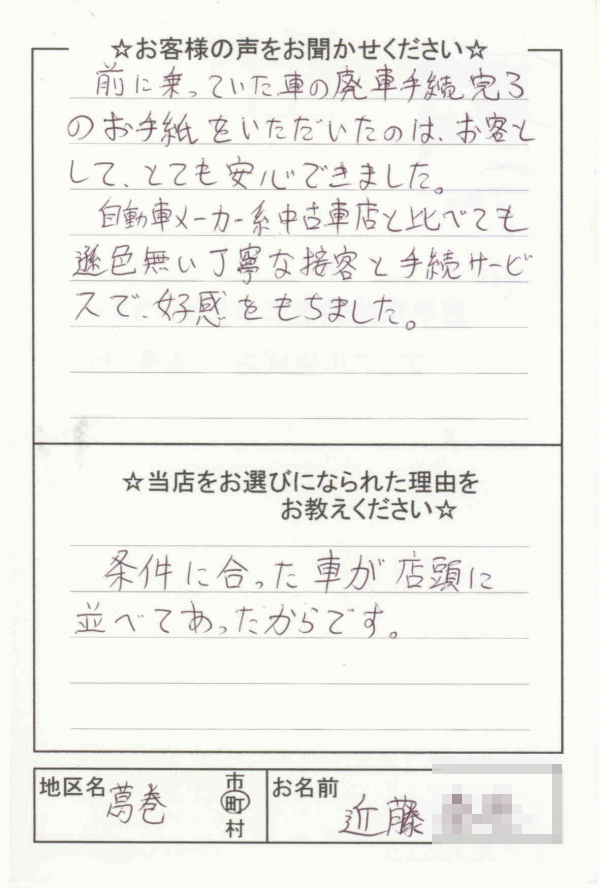 ☆お客様の声をお聞かせください☆
前に乗っていた車の廃車手続完了
のお手紙をいただいたのは、お客と
して、とても安心できました。
自動車メーカー系中古車店と比べても
遜色無い丁寧な接客と手続サービ
スで、好感をもちました。
☆当店をお選びになられた理由を
お教えください☆
条件に合った車が店頭に
並べてあったからです。
地区名 葛巻 市町村
お名前 近藤